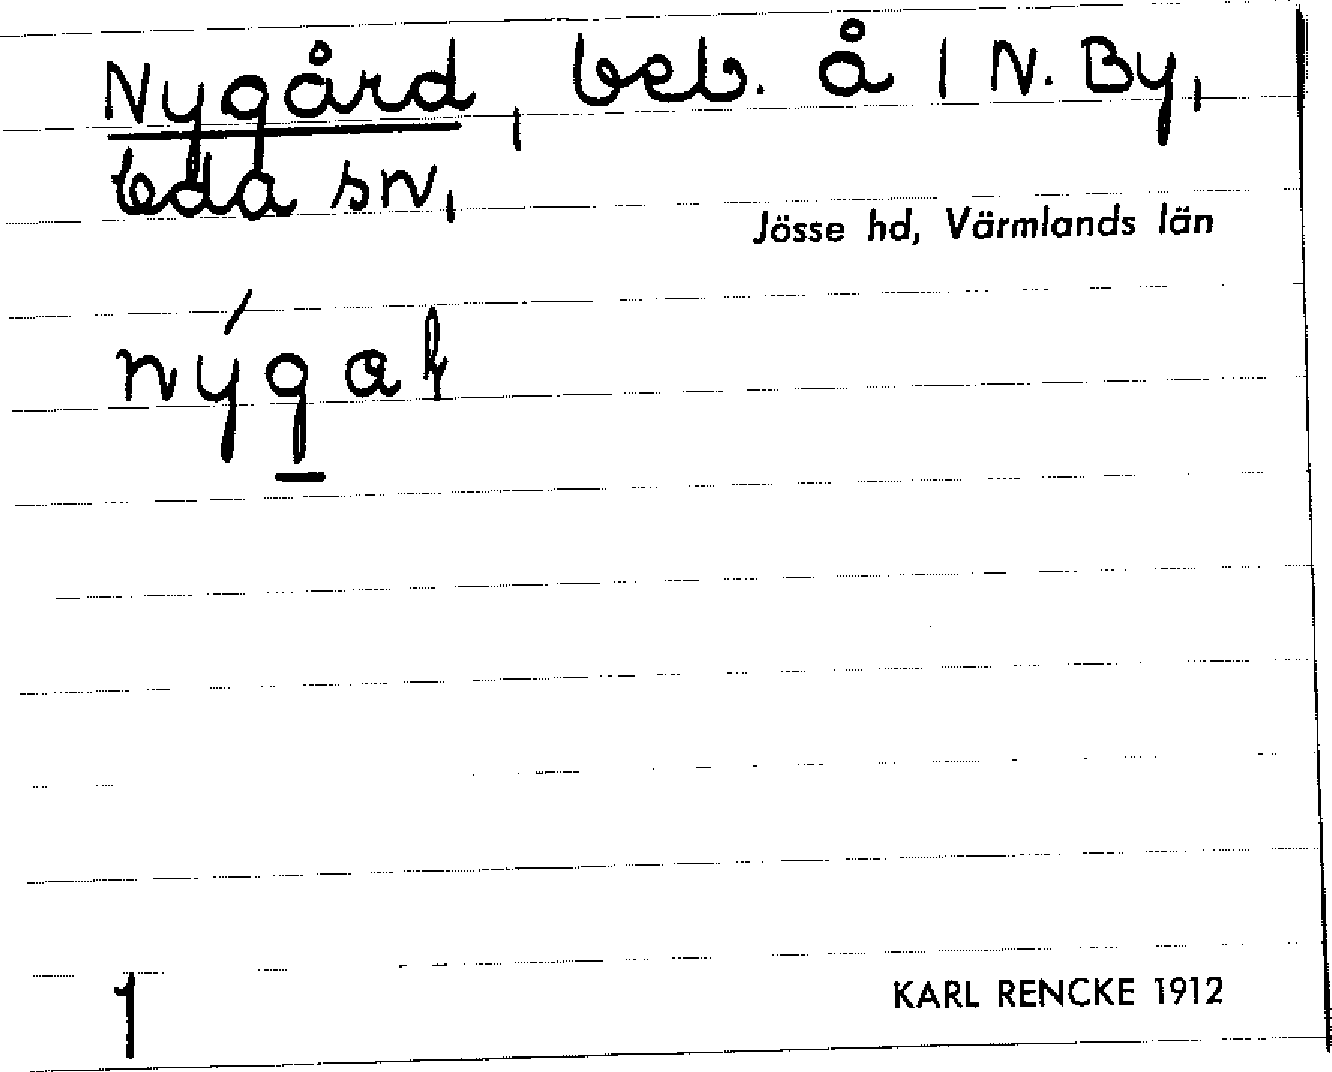 Nygård, beb. å 1 N. By,
Eda sn,
Jösse hd, Värmlands län
1
KARL RENCKE 1912